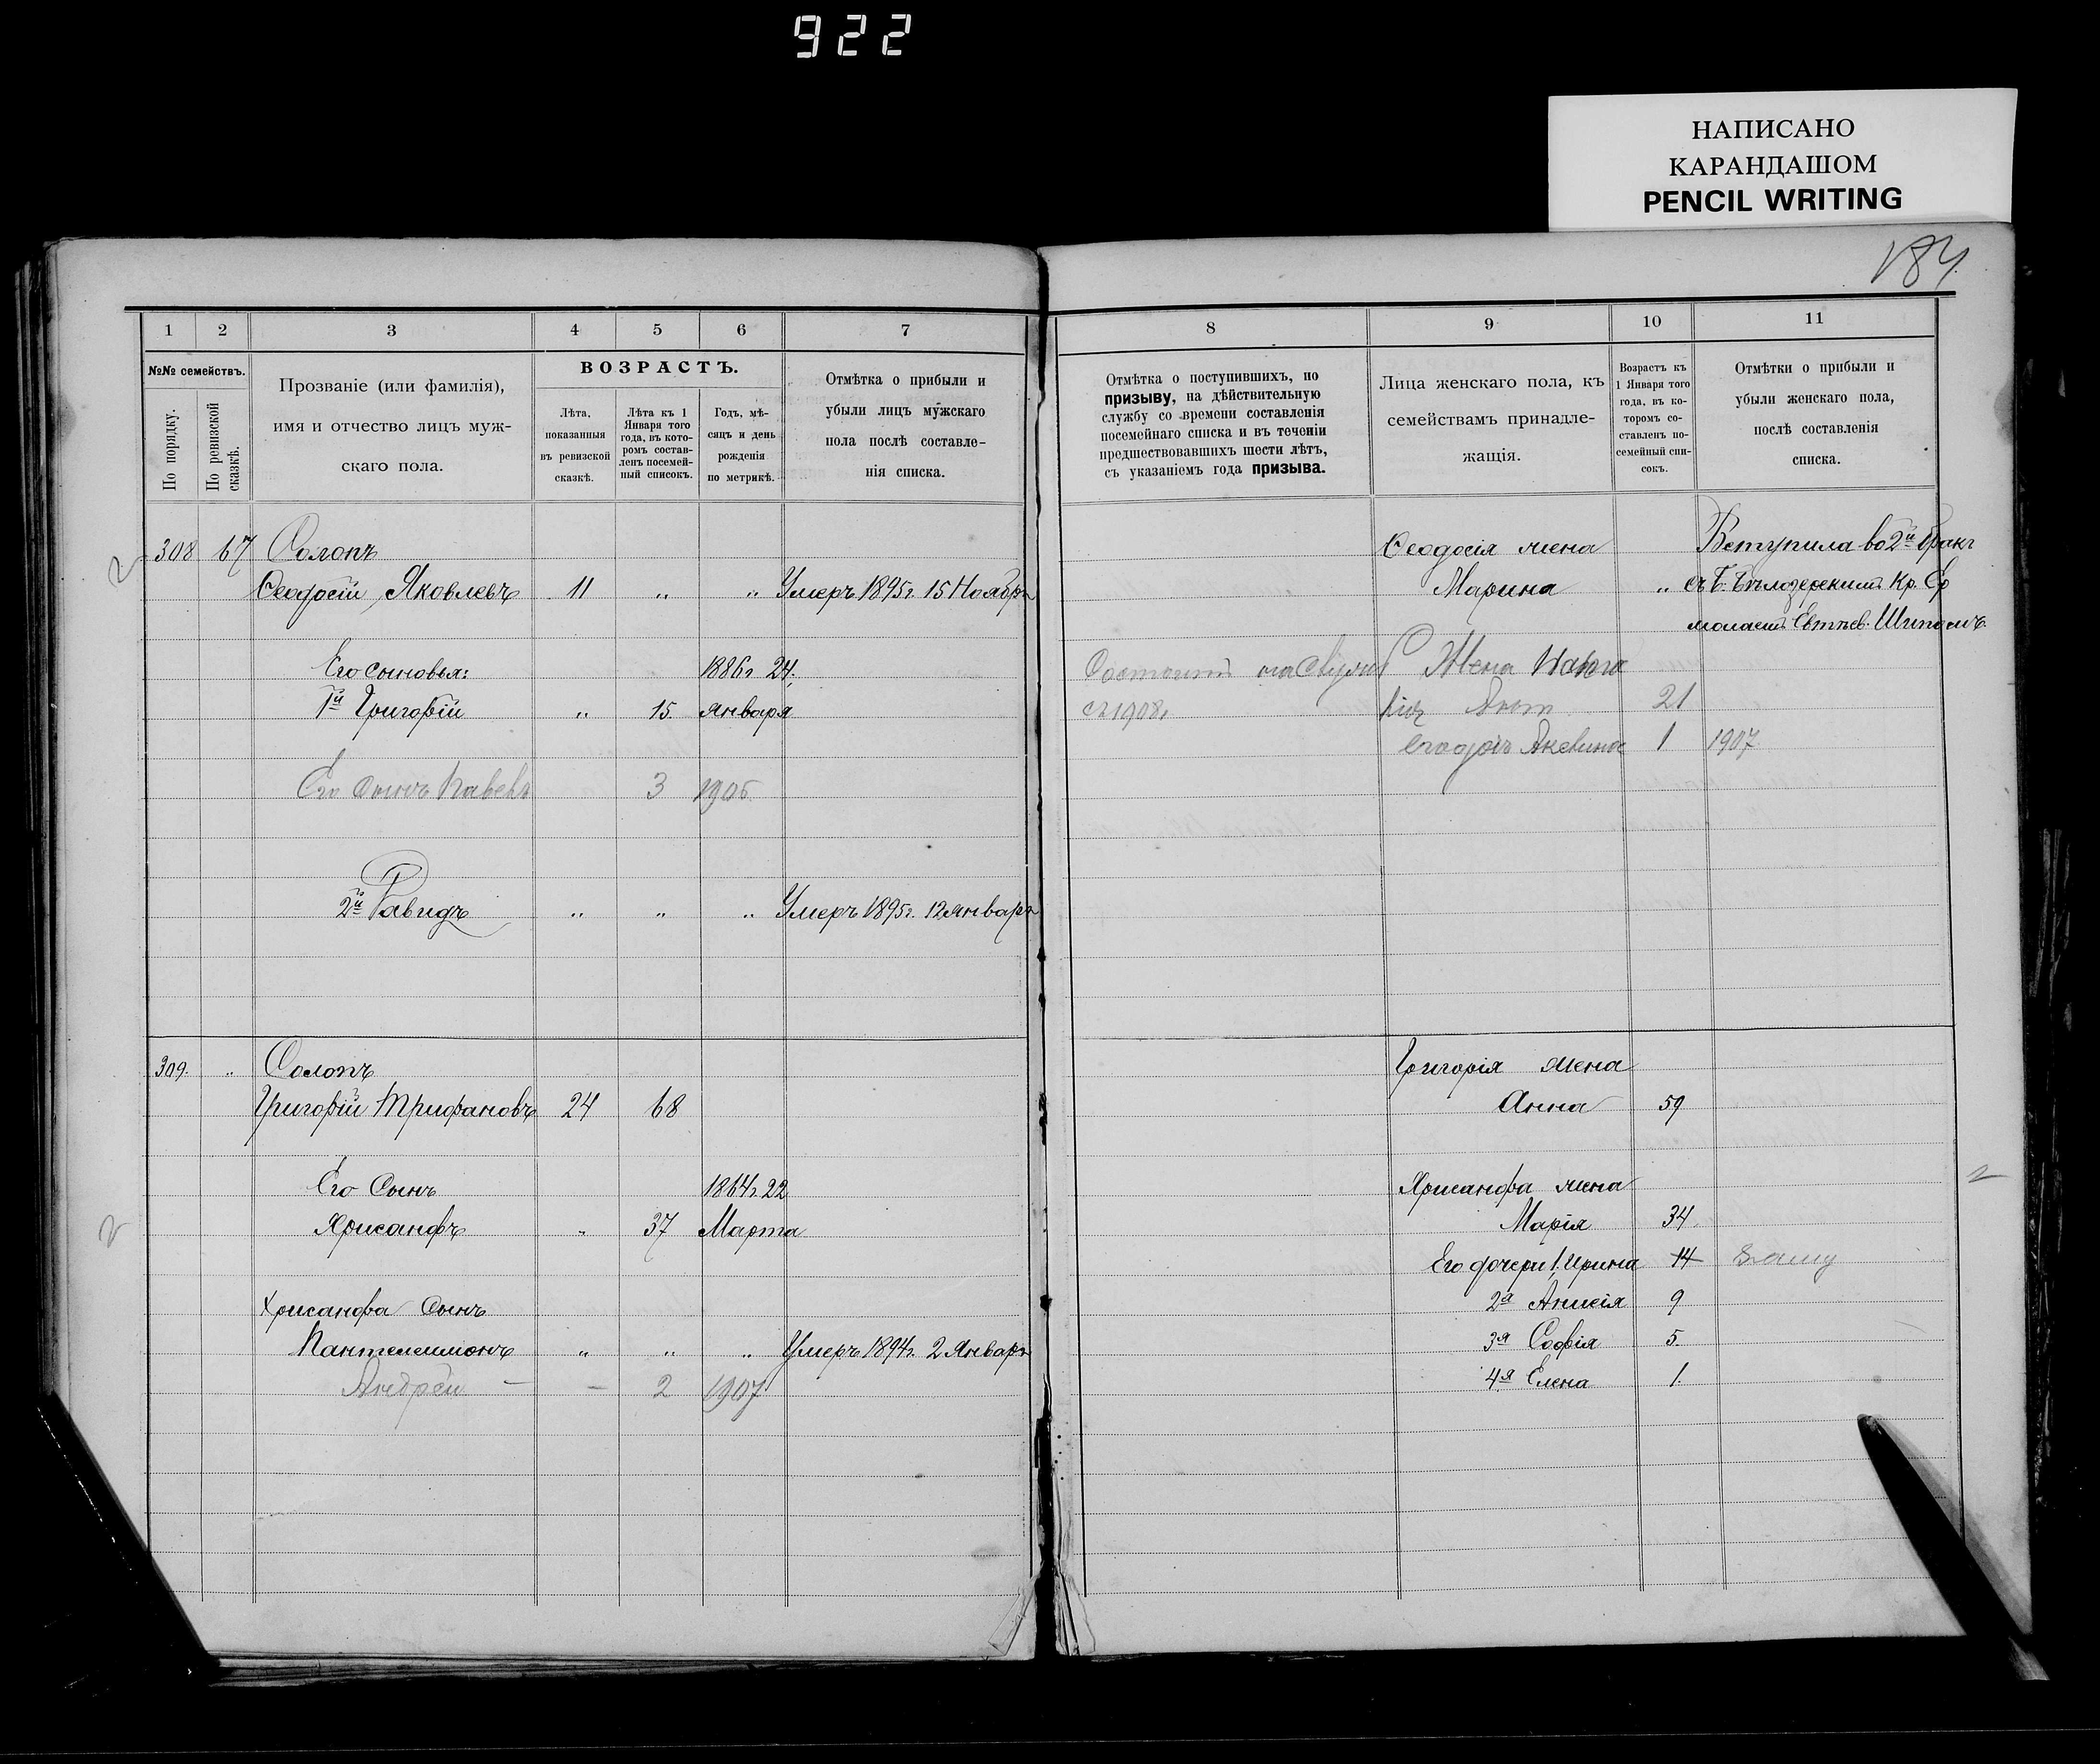 922
НАПИСАНО
КАРАНДАШОМ
PENCIL WRITING
184
1 2 3 4 5 6 7
№№ семействъ.
По порядку.
По ревизской сказкѣ.
Прозваніе (или фамилія),
имя и отчество лицъ муж-
скаго пола.
ВОЗРАСТЪ.
Лѣта,
показанныя
въ ревизской
сказкѣ.
Лѣта къ 1
Января того
года, въ кото-
ромъ состав-
ленъ посемей-
ный списокъ.
Годъ, мѣ-
сяцъ и день
рожденія
по метрикѣ.
Отмѣтка о прибыли и
убыли лицъ мужскаго
пола послѣ составле-
нія списка.
308 67 Солопъ
Ѳеодосій Яковлевъ 11 " " Умеръ 1895г. 15 Ноября
Его сыновья: 1886г 24
1й Григорій " 15. января
Его Сынъ Павелъ 3 1906
2й Давидъ " " " Умеръ 1895г. 12 января
309. " Солопъ
Григорій Трифановъ 24 68
Его Сынъ 1864г 22
Хрисанфъ " 37 Марта
Хрисанфа Сынъ
Пантелеимонъ " " " Умеръ 1894г. 2 Января
Андрей — — 2 1907
8 9 10 11
Отмѣтка о поступившихъ, по
призыву, на дѣйствительную
службу со времени составленія
посемейнаго списка и въ теченіи
предшествовавшихъ шести лѣтъ,
съ указаніемъ года призыва.
Лица женскаго пола, къ
семействамъ принадле-
жащія.
Возрастъ къ
1 Января того
года, въ ко-
торомъ со-
ставленъ по-
семейный спи-
сокъ.
Отмѣтки о прибыли и
убыли женскаго пола,
послѣ составленія
списка.
Ѳеодосія жена Вступила во 2й бракъ
Марина " съ Б. Бѣлозерскимъ Кр. Ер
Шиполъ.
Состоитъ на Жена
съ 1908г 21
1 1907
Григорія жена
Анна 59
Хрисанфа жена
Марія 34.
Его дочери 1. Ирина 14
2я Анисія 9
3я Софія 5.
4я Елена 1.